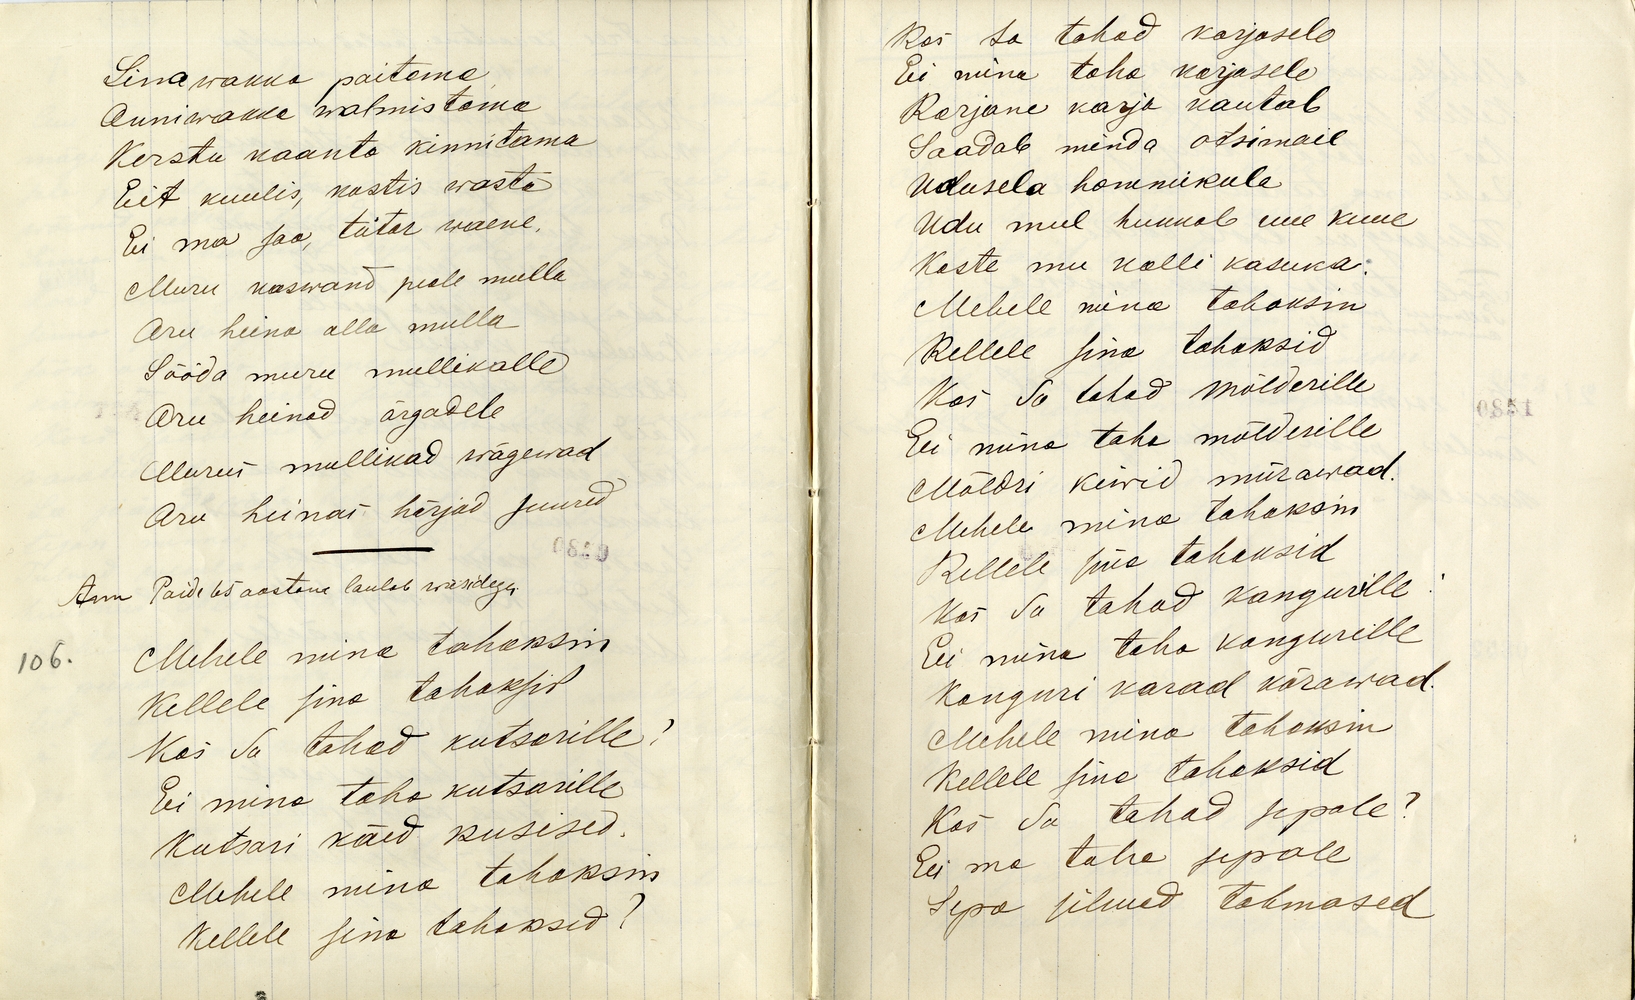 Linawakka paitama
Anniwakka walmistama
Kerstu kaanta kinnitama
Eit kuulis, kostis wasta
Ei ma saa, tütar waene.
Muru kaswand peale mulla
Aru heina alla mulla
Sööda muru mullikalle
Aru heinad ärgadele
Murus mullikad wägewad
Aru heinas härjad suured
0830
Ann Paide 65 aastane laulab wiisidega
106.
Mehele mina tahaksin
Kellele sina tahaksid
Kas Sa tahad kutsarille?
Ei mina taha kutsarille
Kutsari käed pusised.
Mehele mina tahaksin
Kellele sina tahaksid?
Kas sa tahad karjasele
Ei mina taha karjasele
Karjane karja kautab
Saadab minda otsimaie
Udusela hommikula
Udu mul hukkab uue kuue
Kaste mu kalli kasuka.
Mehele mina tahaksin
Kellele sina tahaksid
Kas Sa tahad Mölderille
Ei mina taha mölderille
Möldri kiwid mürawad.
Mehele mina tahaksin
Kellele sina tahaksid
Kas Sa tahad kangurille!
Ei mina taha kangurille
Kanguri karad kärawad.
Mehele mina tahaksin
Kellele sina tahaksid
Kas Sa tahad sepale?
Ei ma taha sepale
Sepa silmad tahmased
0831